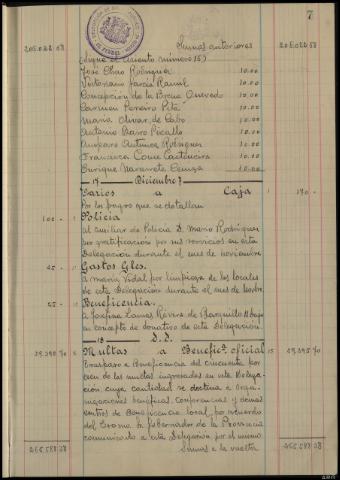 7
205.022 58 Sumas anteriores 205.022 58
(Sigue el asiento número 15)
José Chao Rodriguez 10.00
Victoriano García 10.00
Concepción de la Brena Quevedo 10.00
Carmen Pereiro Pita 10.00
María Alvar de Cabo 10.00
Antonio Barro Picallo 10.00
Amparo Rodriguez 10.00
Francisca Couce 10.00
Enrique Navarrete 10.00
17 Diciembre
Varios a Caja 170
Por los pagos que se detallan
100 Policia
al auxiliar de Policia D. Mario Rodriguez
por gratificación por sus servicios en esta
Delegación durante el mes de noviembre
15 Gastos Gles.
a María Vidal por limpieza de los locales
de esta Delegación durante el mes de
55 Beneficencia.
a Josefina Lamas Rivera de 11 bajo
en concepto de donativo de esta Delegación
18 D.D.
59.395 70 Multas a Benefica oficial 15 59.395 70
Traspaso a Beneficencia del cincuenta por
cien de las multas ingresadas en esta Delega-
ción, cuya cantidad se destina a orga-
nizaciones benéficas, Conferencias y demas
centros de Beneficencia local, por acuerdo
del Excmo. Sr. Gobernador de la Provincia
comunicado a esta Delegación por el mismo
Sumas a la vuelta